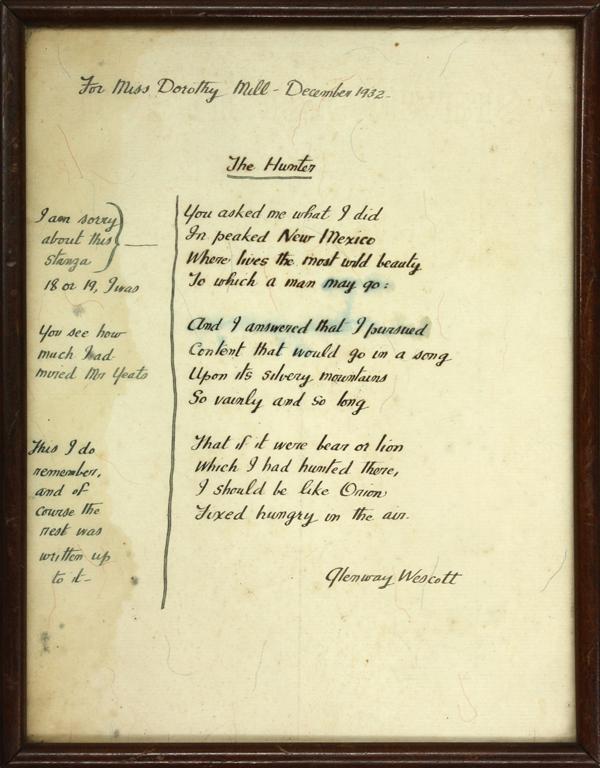 For Miss Dorothy Mill - December 1932 -
The Hunter
I am sorry
about this
stanza
18 or 19, I was
You asked me what I did
In peaked New Mexico
Where lives the most wild beauty
To which a man may go:
You see how
much I ad-
mired Mr Yeats
And I answered that I pursued
Content that would go in a song
Upon its silvery mountains
So vainly and so long
This I do
remember,
and of
course the
rest was
written up
to it -
That if it were bear or lion
Which I had hunted there,
I should be like Orion
Fixed hungry in the air.
Glenway Wescott